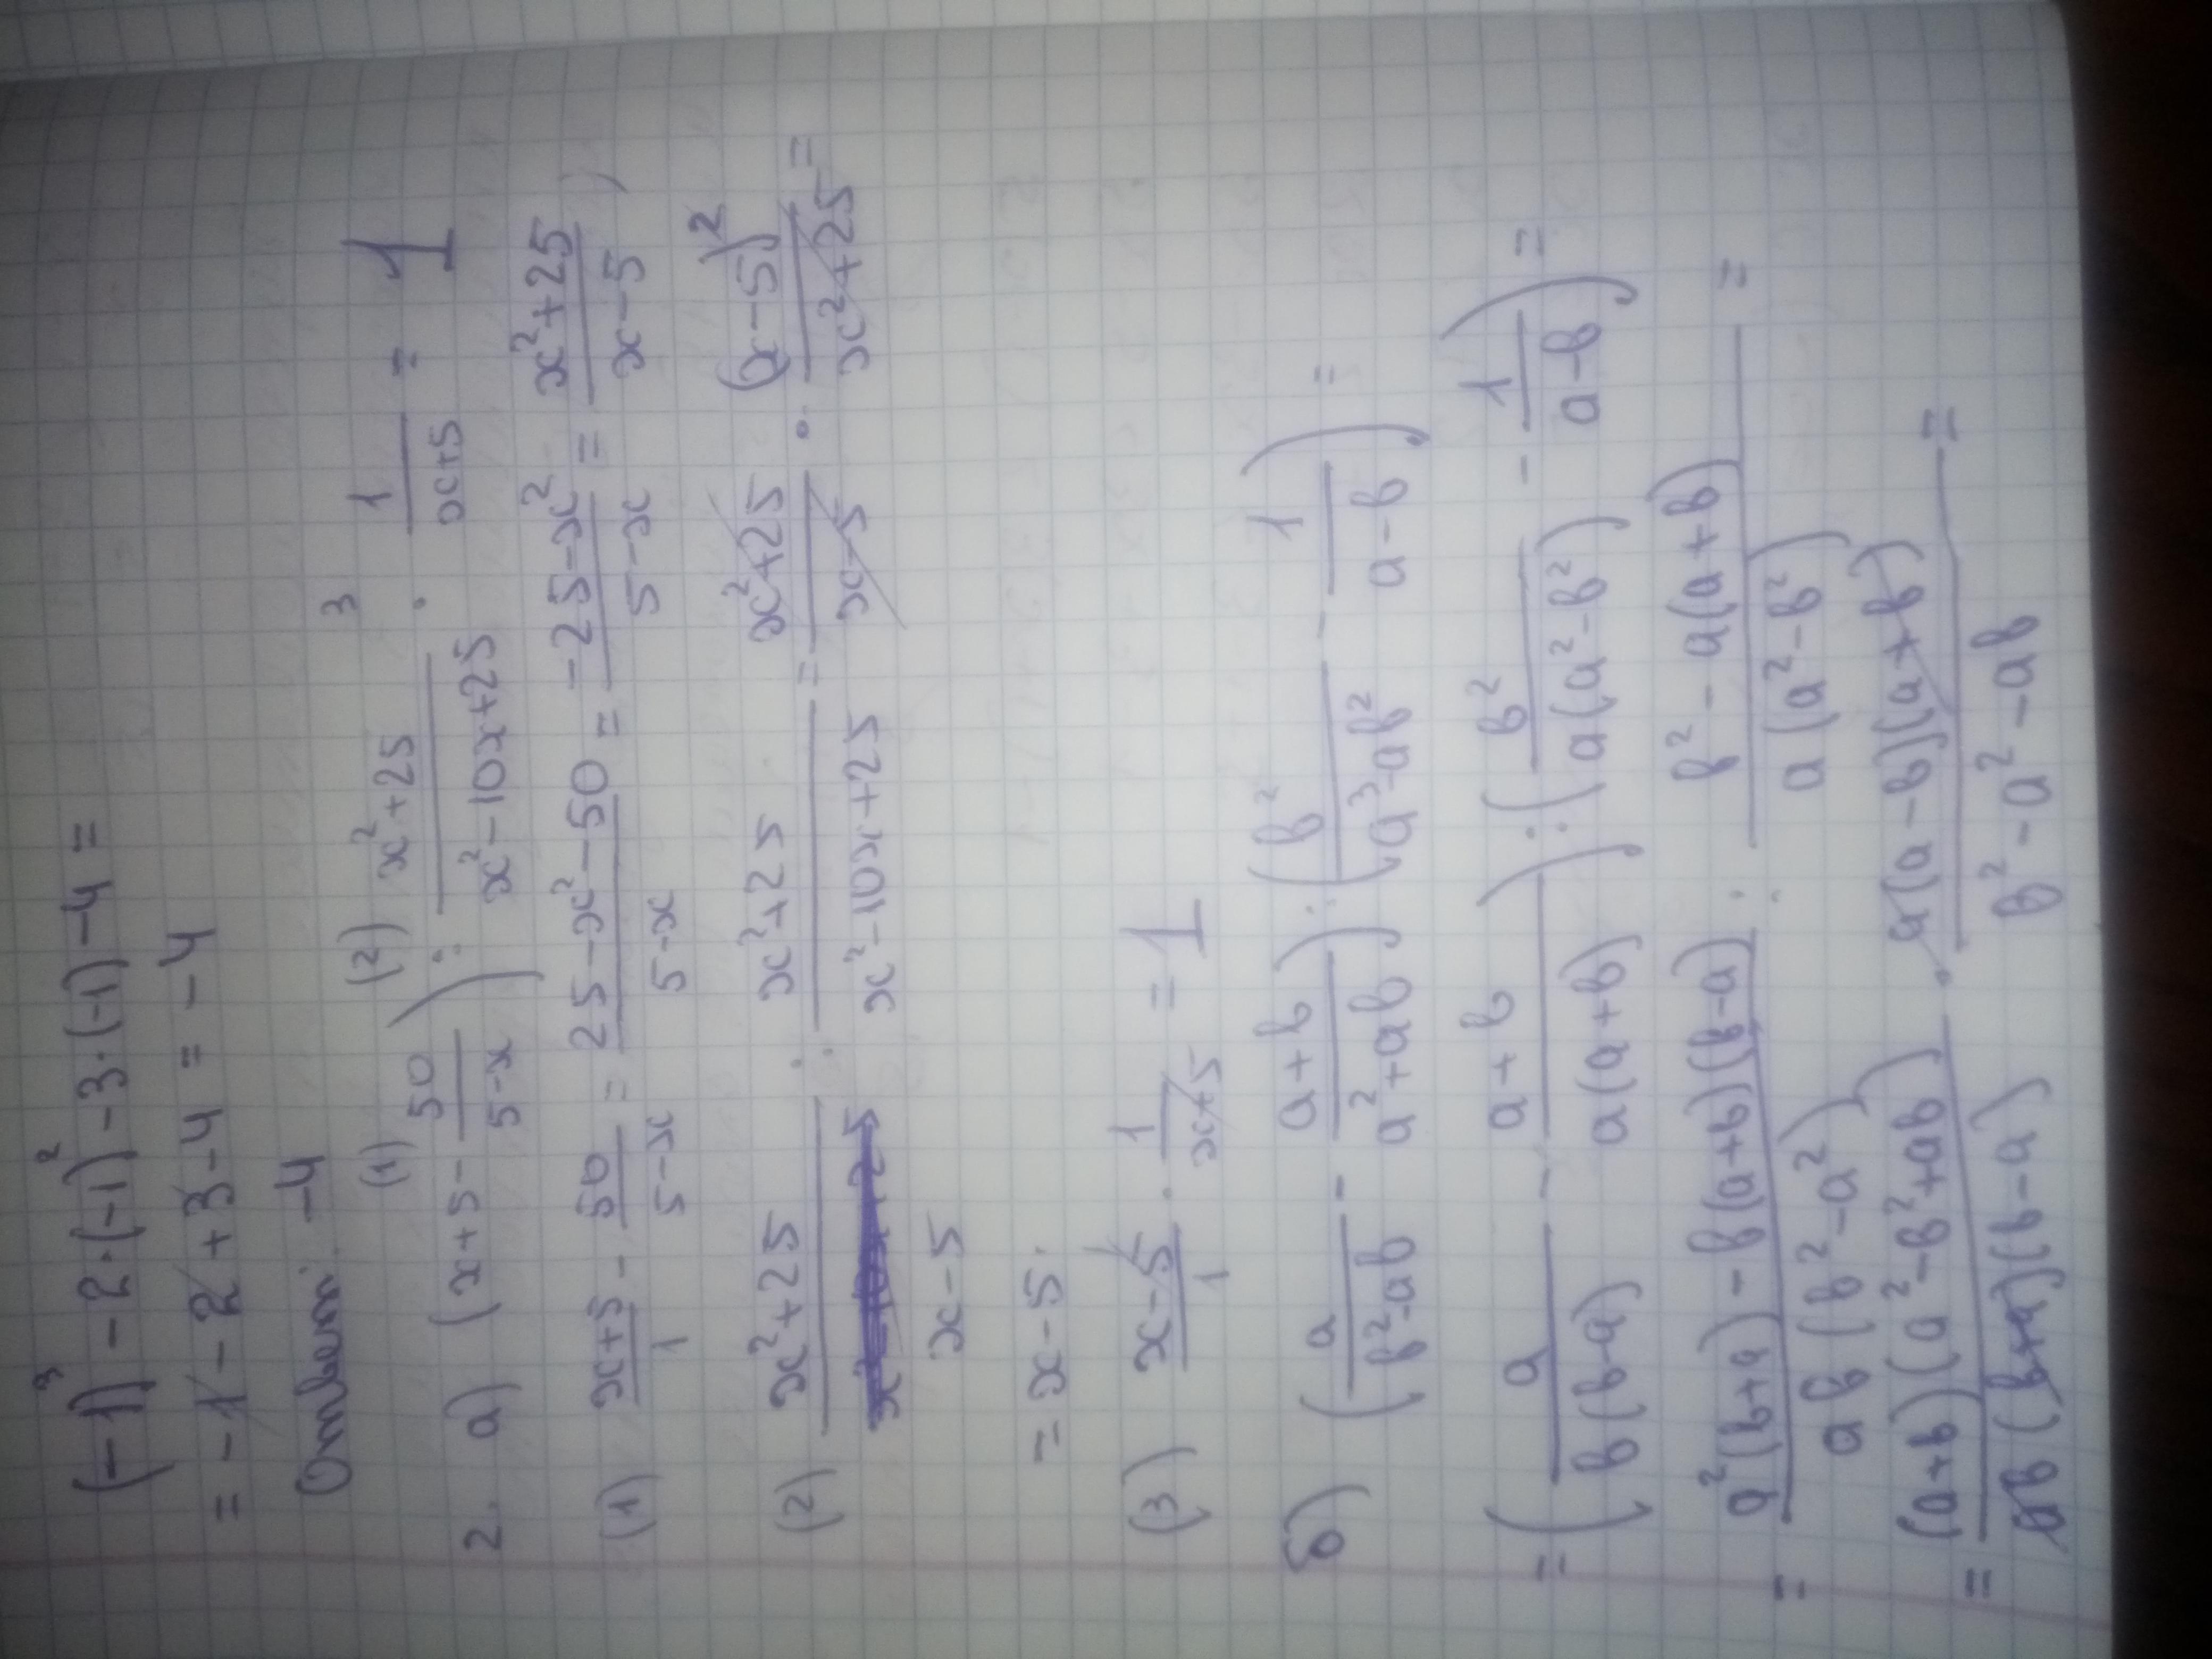 (-1)³ - 2·(-1)² - 3·(-1) - 4 =
= -1 - 2 + 3 - 4 = -4
Ответ: -4
(1) (2) 3
2. а) (x+5 - 50/(5-x)) : (x²+25)/(x²-10x+25) · 1/(x+5) = 1
(1) (x+5)/1 - 50/(5-x) = (25-x²-50)/(5-x) = (-25-x²)/(5-x) = (x²+25)/(x-5)
(2) (x²+25)/(x-5) : (x²+25)/(x²-10x+25) = (x²+25)/(x-5) · (x-5)²/(x²+25) =
= x-5.
(3) (x-5)/1 · 1/(x+5) = 1
б) (a/(b²-ab) - (a+b)/(a²+ab)) : (b²/(a³-ab²) - 1/(a-b)) =
= (a/(b(b-a)) - (a+b)/(a(a+b))) : (b²/(a(a²-b²)) - 1/(a-b)) =
= (a²(b+a) - b(a+b)(b-a))/(ab(b²-a²)) : (b² - a(a+b))/(a(a²-b²)) =
= (a+b)(a²-b²+ab)/(ab(b+a)(b-a)) · a(a-b)(a+b)/(b²-a²-ab) =